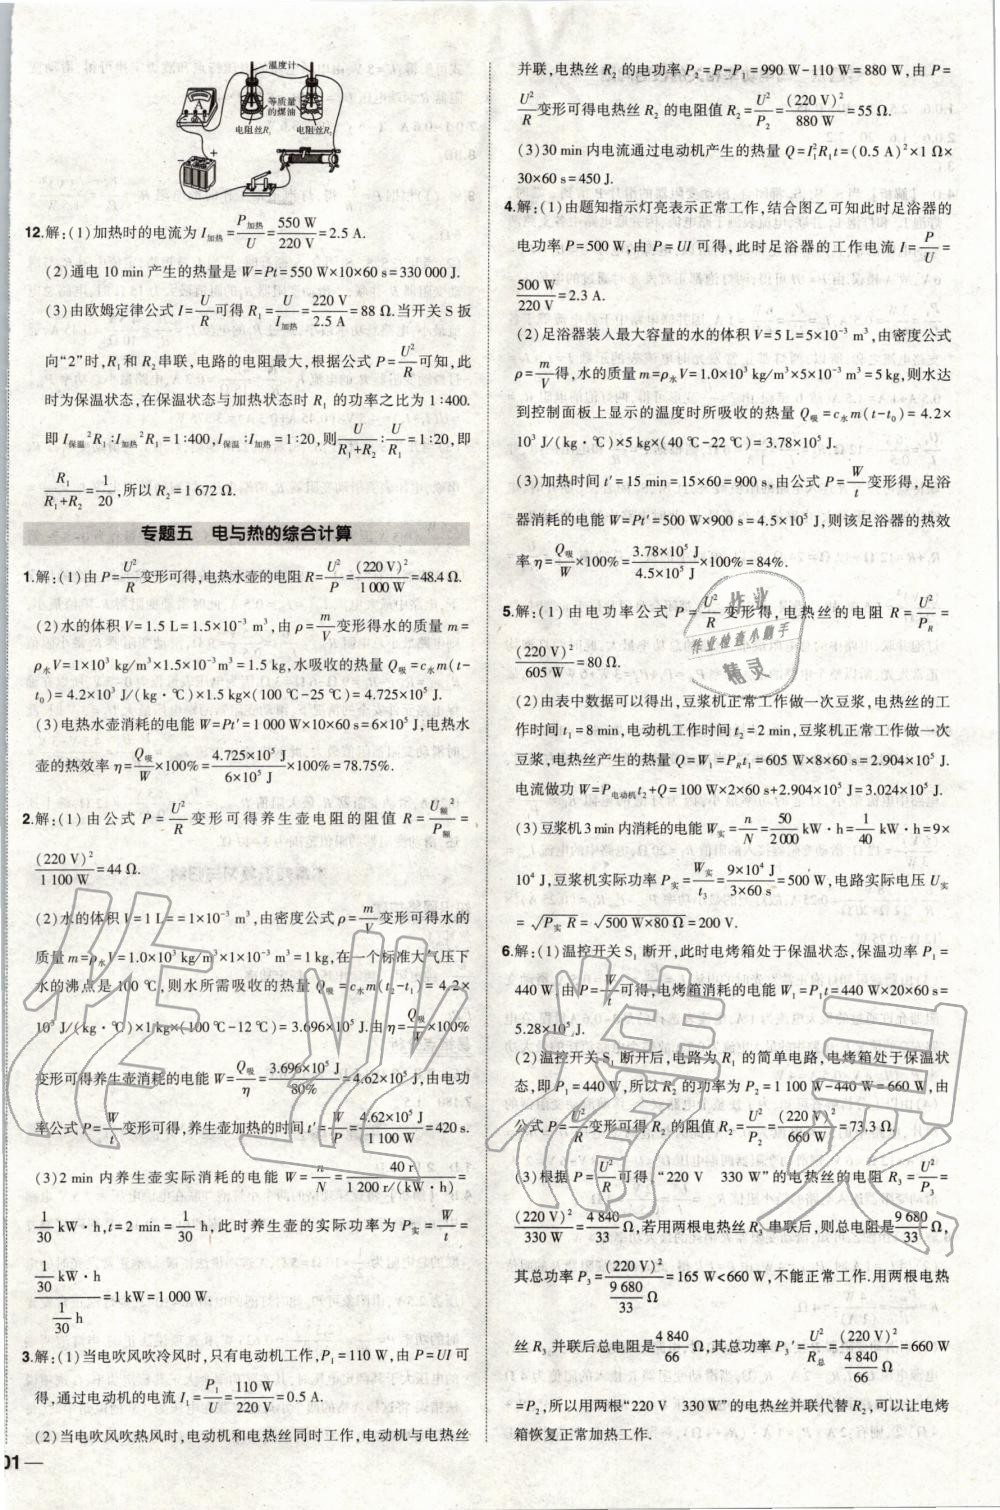 温度计
等质量
的煤油
电阻丝R₁ 电阻丝R₂
12.解:(1)加热时的电流为I加热=P加热/U=550 W/220 V=2.5 A.
(2)通电 10 min 产生的热量是 W=Pt=550 W×10×60 s=330 000 J.
(3)由欧姆定律公式 I=U/R可得 R₁=U/I加热=220 V/2.5 A=88 Ω.当开关 S 扳
向“2”时,R₁和 R₂串联,电路的电阻最大,根据公式 P=U²/R可知,此
时为保温状态,在保温状态与加热状态时 R₁ 的功率之比为 1∶400.
即 I保温²R₁∶I加热²R₁=1∶400,I保温∶I加热=1∶20,则U/(R₁+R₂)∶U/R₁=1∶20,即
R₁/(R₁+R₂)=1/20,所以 R₂=1 672 Ω.
专题五 电与热的综合计算
1.解:(1)由 P=U²/R变形可得,电热水壶的电阻 R=U²/P=(220 V)²/1 000 W=48.4 Ω.
(2)水的体积 V=1.5 L=1.5×10⁻³ m³,由 ρ=m/V变形得水的质量 m=
ρ水V=1×10³ kg/m³×1.5×10⁻³ m³=1.5 kg,水吸收的热量 Q吸=c水m(t-
t₀)=4.2×10³ J/(kg·℃)×1.5 kg×(100 ℃-25 ℃)=4.725×10⁵ J.
(3)电热水壶消耗的电能 W=Pt′=1 000 W×10×60 s=6×10⁵ J,电热水
壶的热效率 η=Q吸/W×100%=4.725×10⁵ J/6×10⁵ J×100%=78.75%.
2.解:(1)由公式 P=U²/R变形可得养生壶电阻的阻值 R=U额²/P额=
(220 V)²/1 100 W=44 Ω.
(2)水的体积 V=1 L=1×10⁻³ m³,由密度公式 ρ=m/V变形可得水的
质量 m=ρ水V=1.0×10³ kg/m³×1×10⁻³ m³=1 kg,在一个标准大气压下
水的沸点是 100 ℃,则水所需吸收的热量 Q吸=c水m(t₂-t₁)=4.2×
10³ J/(kg·℃)×1 kg×(100 ℃-12 ℃)=3.696×10⁵ J.由η=Q吸/W×100%
变形可得养生壶消耗的电能 W=Q吸/η=3.696×10⁵ J/80%=4.62×10⁵ J,由电功
率公式 P=W/t变形可得,养生壶加热的时间 t′=W/P=4.62×10⁵ J/1 100 W=420 s.
(3)2 min 内养生壶实际消耗的电能 W=n/N=40 r/1 200 r/(kW·h)=
1/30 kW·h,t=2 min=1/30 h,此时养生壶的实际功率为 P实=W/t=
(1/30 kW·h)/(1/30 h)=1 kW=1 000 W.
3.解:(1)当电吹风吹冷风时,只有电动机工作,P₁=110 W,由 P=UI 可
得,通过电动机的电流 I₁=P₁/U=110 W/220 V=0.5 A.
(2)当电吹风吹热风时,电动机和电热丝同时工作,电动机与电热丝
01
并联,电热丝 R₂ 的电功率 P₂=P-P₁=990 W-110 W=880 W,由 P=
U²/R变形可得电热丝 R₂ 的电阻值 R₂=U²/P₂=(220 V)²/880 W=55 Ω.
(3)30 min 内电流通过电动机产生的热量 Q=I₁²R₁t=(0.5 A)²×1 Ω×
30×60 s=450 J.
4.解:(1)由题知指示灯亮表示正常工作,结合图乙可知此时足浴器的
电功率 P=500 W,由 P=UI 可得,此时足浴器的工作电流 I=P/U=
500 W/220 V=2.3 A.
(2)足浴器装入最大容量的水的体积 V=5 L=5×10⁻³ m³,由密度公式
ρ=m/V得,水的质量 m=ρ水V=1.0×10³ kg/m³×5×10⁻³ m³=5 kg,则水达
到控制面板上显示的温度时所吸收的热量 Q吸=c水m(t-t₀)=4.2×
10³ J/(kg·℃)×5 kg×(40 ℃-22 ℃)=3.78×10⁵ J.
(3)加热时间 t′=15 min=15×60=900 s,由公式 P=W/t变形得,足浴
器消耗的电能 W=Pt′=500 W×900 s=4.5×10⁵ J,则该足浴器的热效
率 η=Q吸/W×100%=3.78×10⁵ J/4.5×10⁵ J×100%=84%.
5.解:(1)由电功率公式 P=U²/R变形得,电热丝的电阻 R=U²/P_R=
(220 V)²/605 W=80 Ω.
(2)由表中数据可以得出,豆浆机正常工作做一次豆浆,电热丝的工
作时间 t₁=8 min,电动机工作时间 t₂=2 min,豆浆机正常工作做一次
豆浆,电热丝产生的热量 Q=W₁=P_R t₁=605 W×8×60 s=2.904×10⁵ J.
电流做功 W=P电动机t₂+Q=100 W×2×60 s+2.904×10⁵ J=3.024×10⁵ J.
(3)豆浆机 3 min 内消耗的电能 W实=n/N=50/2 000 kW·h=1/40 kW·h=9×
10⁴ J,豆浆机实际功率 P实=W实/t₃=9×10⁴ J/3×60 s=500 W,电路实际电压 U实
=√(P实R)=√(500 W×80 Ω)=200 V.
6.解:(1)温控开关 S₁ 断开,此时电烤箱处于保温状态,保温功率 P₁=
440 W.由 P=W/t可得,电烤箱消耗的电能 W₁=P₁t=440 W×20×60 s=
5.28×10⁵ J.
(2)温控开关 S₁断开后,电路为 R₁ 的简单电路,电烤箱处于保温状
态,即 P₁=440 W,所以 R₂ 的功率为 P₂=1 100 W-440 W=660 W,由
公式 P=U²/R变形可得 R₂ 的阻值 R₂=U²/P₂=(220 V)²/660 W=73.3 Ω.
(3)根据 P=U²/R可得,“220 V 330 W”的电热丝的电阻 R₃=U²/P₃=
(220 V)²/330 W=4 840/33 Ω,若用两根电热丝 R₃ 串联后,则总电阻是9 680/33 Ω,
其总功率 P₃=(220 V)²/(9 680/33 Ω)=165 W<660 W,不能正常工作.用两根电热
丝 R₃ 并联后总电阻是4 840/66 Ω,其总功率 P₃′=U²/R总=(220 V)²/(4 840/66 Ω)=660 W
=P₂,所以用两根“220 V 330 W”的电热丝并联代替 R₂,可以让电烤
箱恢复正常加热工作.
作业
作业检查小助手
精灵
作业精灵